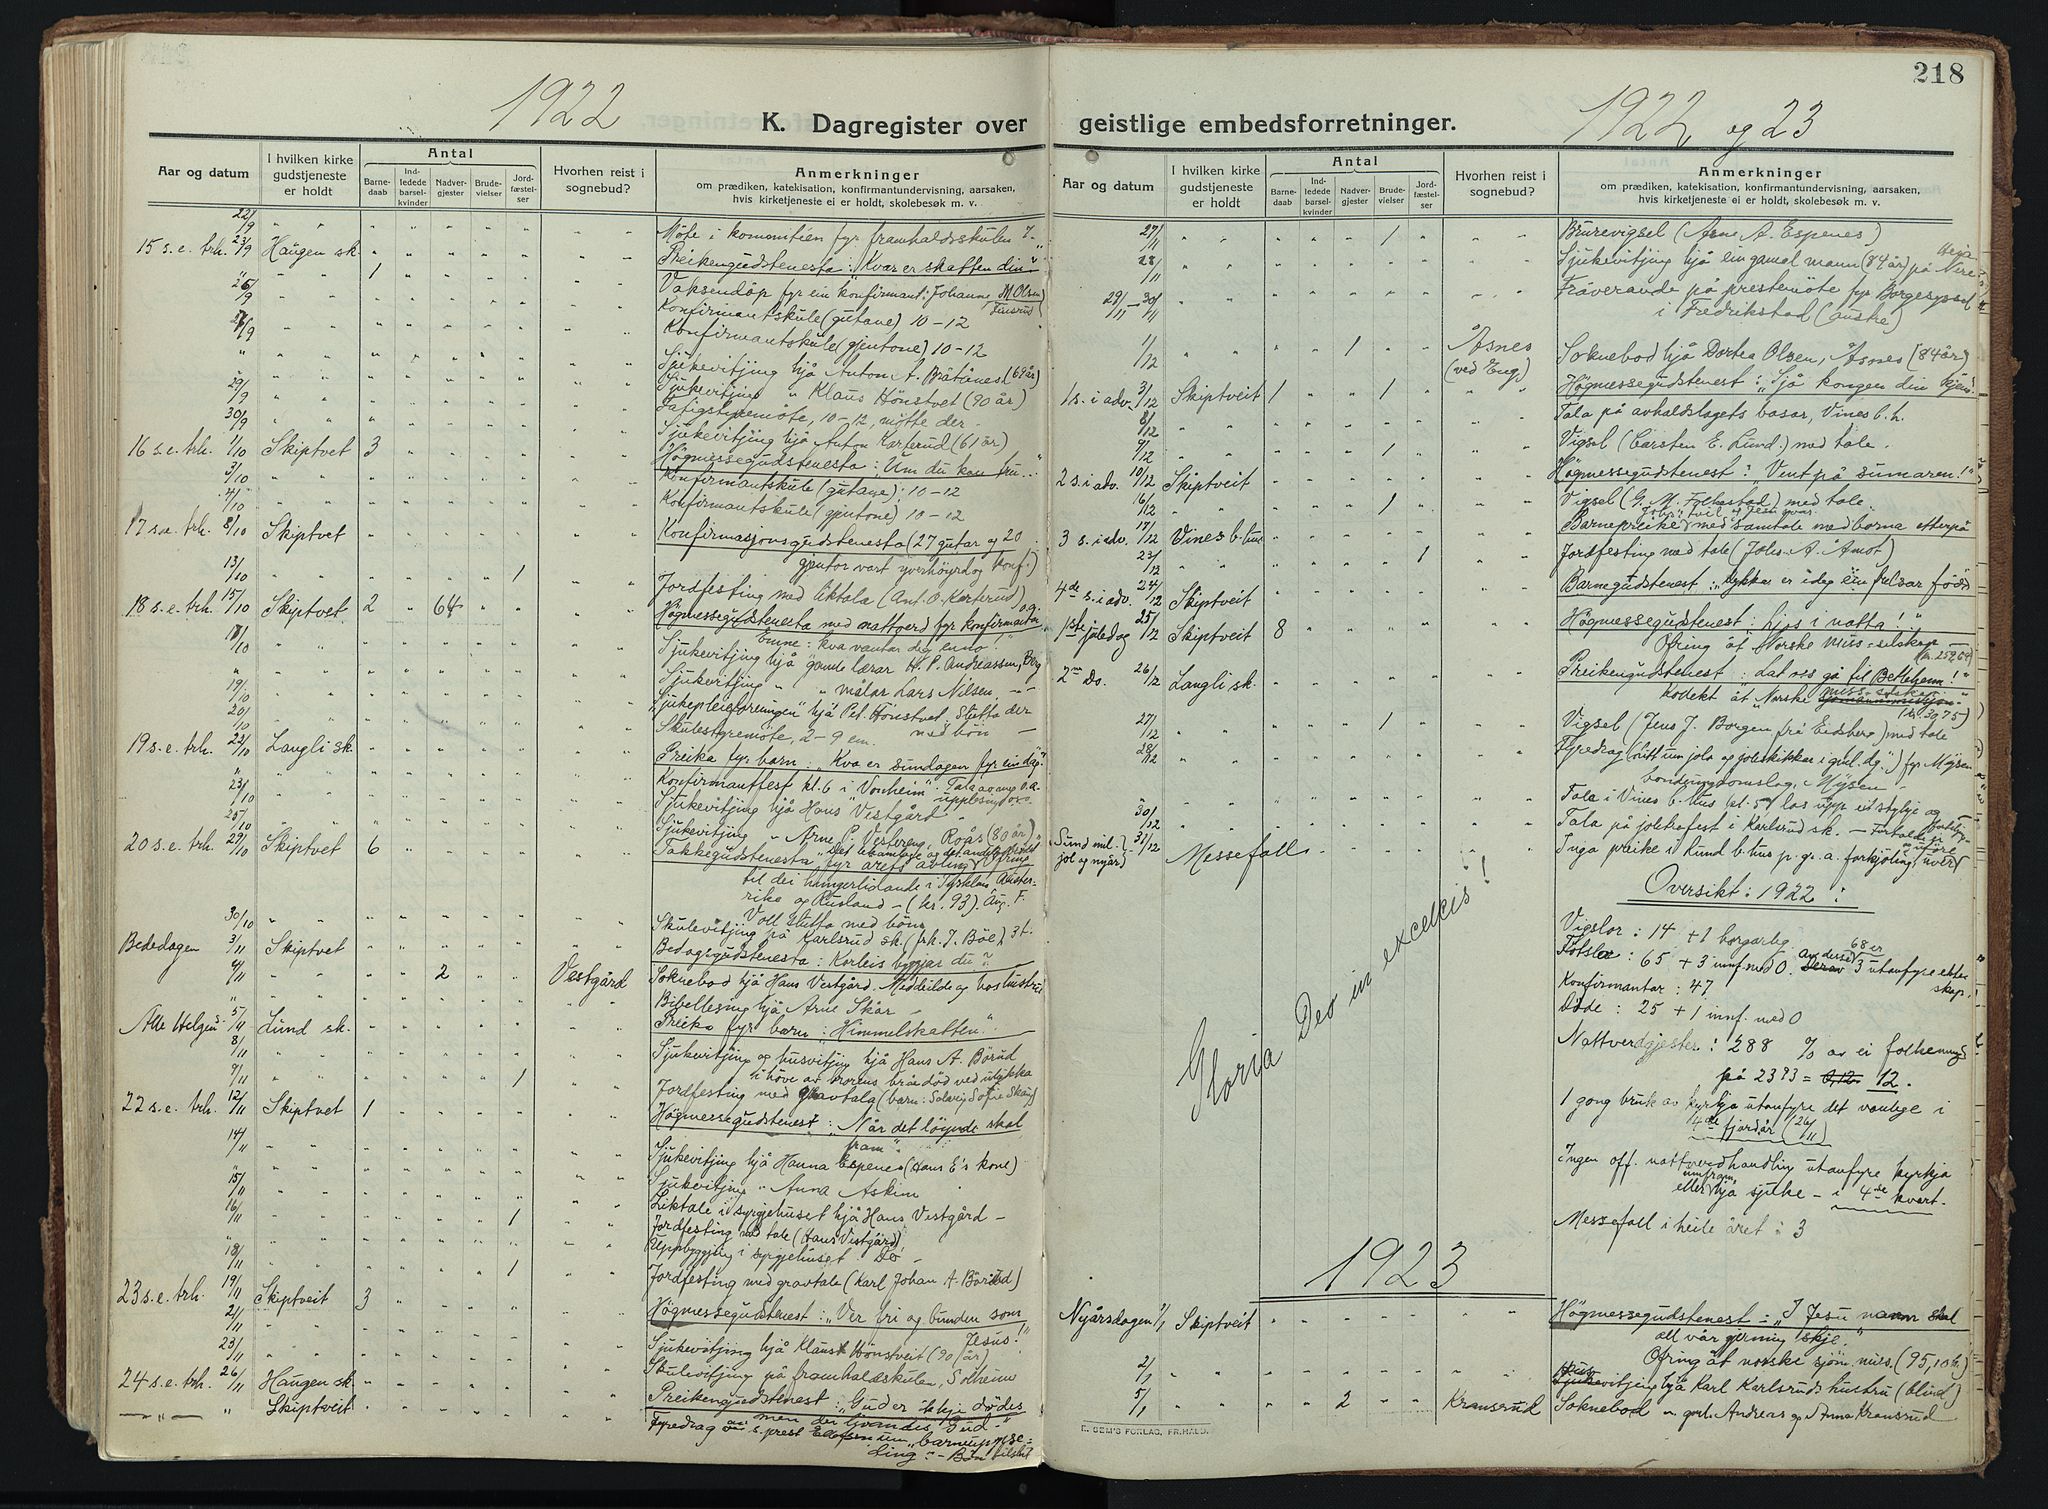 1922
K. Dagregister over
Aar og datum
I hvilken kirke
gudstjeneste
er holdt
Antal
Barne-
daab
Ind-
ledede
barsel-
kvinder
Nadver-
gjester
Brude-
vielser
Jord-
fæstel-
ser
Hvorhen reist i
sognebud?
Anmerkninger
om prædiken, katekisation, konfirmantundervisning, aarsaken,
hvis kirketjeneste ei er holdt, skolebesøk m. v.
22/9 Möte i fyr framhaldsskulen
15 s. e. trh. 23/9 Haugen sk. Preikengudstenesta: "Kvar er skatten din"
1 Vaksendåp fyr ein konfirmant: Johanne M Olsen
26/9 Konfirmantskule (gutane) 10-12
27/9 Konfirmantskule (gjentone) 10-12
Sjukevitjing hjå Anton A. Bråtånes (69 år)
29/9 Sjukevitjing " Klaus Hönstvet (90 år)
30/9 10-12, der
Sjukevitjing hjå Anton Karterud (61 år)
16 s. e. trh. 1/10 Skiptvet 3 Högmessegudstenesta: "Um du kan tru..."
3/10 Konfirmantskule (gutane): 10-12
4/10 Konfirmantskule (gjentone) 10-12
17 s. e. trh. 8/10 Skiptvet Konfirmasjonsgudstenesta (27 gutar og 20
gjentor vart yverhöyrd og konf.)
13/10 1 Jordfesting med liktala (Ant. O. Karterud)
18 s. e. trh. 15/10 Skiptvet 2 64 Högmessegudstenesta med nattverd fyr konfirmantar o.a.
Emne: kva vantar deg enno?
Sjukevitjing hjå gamle lærar H. P. Andreassen, Berg
Sjukevitjing " målar Lars Nilsen
19/10 "Sjukepleieforeningen" hjå Pet. Hönstvet. Slutta der
med bön
20/10 Skulestyremöte, 2-9 em.
19 s. e. trh. 22/10 Langli sk. Preika fyr barn: "Kva er sundagen fyr ein dag"
Konfirmantfest kl. 6 i Vonheim.
23/10 Sjukevitjing hjå Hans Vestgård
25/10 Sjukevitjing " Arne P. Vestereng, Rojås (80 år)
20 s. e. trh. 29/10 Skiptvet 6 Takkegudstenesta fyr årets avling
til dei hungerlidande i Tyskland, Auster-
rike og Rusland - (kr. 93).
30/10 Skulevitjing på Karlsrud sk. (frk. J. Böe) 3 t.
Bededagen 3/11 Skiptvet Bedagsgudstenesta: Korleis byggjar du?
4/11 2 Vestgård Soknebod hjå Hans Vestgård. og hos hustru
Bibellesing hjå Arne Skår
Alle Helgens 5/11 Lund sk. Preika fyr barn: "Himmelskatten".
8/11 Sjukevitjing og husvitjing hjå Hans A. Börud
i höve av brorens bråe död ved ulykka
9/11 1 Jordfesting med gravtala (barn: Solveig Sofie Skår)
22 s. e. trh. 12/11 Skiptvet 1 Högmessegudstenest: "Når det löynde skal
fram".
14/11 Sjukevitjing hjå Hanna Espenes (Hans E's kone)
Sjukevitjing " Anna Askim
15/11 Liktale i syrgjehuset hjå Hans Vestgård -
16/11 1 Jordfesting med tale (Hans Vestgård)
Uppbyggjing i syrgjehuset Do
18/11 1 Jordfesting med gravtale (Karl Johan A. Börud)
23 s. e. trh. 19/11 Skiptveit 3 Högmessegudstenest: "Ver fri og bunden som
Jesus!"
21/11 Sjukevitjing hjå Klaus Hönstveit (90 år)
23/11 Skulevitjing på framhaldsskulen, Solheim
24 s. e. trh. 26/11 Haugen sk. Preikengudstenest: "Gud er ikkje dödes
men dei livandes Gud"
Skiptveit Fyredrag av s. prest um

218
1922 og 23
geistlige embedsforretninger.
Aar og datum
I hvilken kirke
gudstjeneste
er holdt
Antal
Barne-
daab
Ind-
ledede
barsel-
kvinder
Nadver-
gjester
Brude-
vielser
Jord-
fæstel-
ser
Hvorhen reist i
sognebud?
Anmerkninger
om prædiken, katekisation, konfirmantundervisning, aarsaken,
hvis kirketjeneste ei er holdt, skolebesøk m. v.
27/11 1 Brurevigsel (Arne A. Espenes)
28/11 Sjukevitjing hjå ein gamal mann (84 år) på Nere
29/11 - 30/11 Fråverande på prestemöte fyr Borgesyssel
i Fredrikstad (austre)
1/12 1 Åsnes Soknebod hjå Dortea Olsen, Åsnes (84 år)
(ved Eng)
1 s. i adv. 3/12 Skiptveit 1 1 Högmessegudstenest: "Sjå kongen din kjem!"
8/12 Tala på avhaldslagets basar, Vines b.h.
9/12 1 Vigsel (Carsten E. Lund.) med tale.
2 s. i adv. 10/12 Skiptveit Högmessegudstenest: "Vent på sumaren!"
16/12 1 Vigsel (G. M. ) med tale
3 s. i adv. 17/12 Vines b. hus Barnepreike med samtale med borna etterpå
23/12 1 Jordfesting med tale (Johs. A. Åmot)
4de s. i adv. 24/12 Skiptveit Barnegudstenest: "dykkar er idag ein frelsar född
1ste joledag 25/12 Skiptveit 8 Högmessegudstenest: ljos i natta!"
Ofring åt Norske miss-selskap
(kr. 252,64)
2 do. 26/12 Langli sk. Preikengudstenest: lat oss gå til Betlehem!"
Kollekt åt Norske miss-selskap
(kr. 30,75)
27/12 1 Vigsel (Jens J. Borgen frå Eidsberg) med tale
28/12 Fyredrag (litt um jola og joleskikkar i gml. dg.") fyr Mysen
bondeungdomslag, Mysen.
Tala i Vines b. hus kl. 5 og las upp eit stykje
30/12 Tala på joletrefest i Karlsrud sk. -
Sund mil. 31/12 Messefall Inga preike i Lund b. hus p. g. a. forkjöling,
jol og nyår)
Gloria Deo in excelcis!
Oversikt: 1922:
Vigslor: 14 + 1 borgarleg.
68 er
: 65 + 3 innf. med 0. 3 utanfyre ekte-
skap.
Konfirmantar: 47
Döde: 25 + 1 innf. med 0
Nattverdgjester: 288 % av ei folkemengd
på 2393 = 0,12. 12.
1 gong bruk av kyrkja utanfyre det vanlege i
4de fjordår (26/11)
Ingen off. nattverdhandling utanfyre kyrkja
eller hjå sjuke - i 4de kvart.
Messefall i heile året: 3
1923
Nyårsdagen 1/1 Skiptveit Högmessegudstenest: "I Jesu namn skal
all vår gjerning skje"
Ofring åt norske sjöm. miss. (95,10 kr)
2/1 Sjukevitjing hjå Karl Karlsruds hustru (blind)
5/1 2 Kransrud Soknebod Andreas og Anna Kransrud
E. SEM'S FORLAG, FR.HALD.